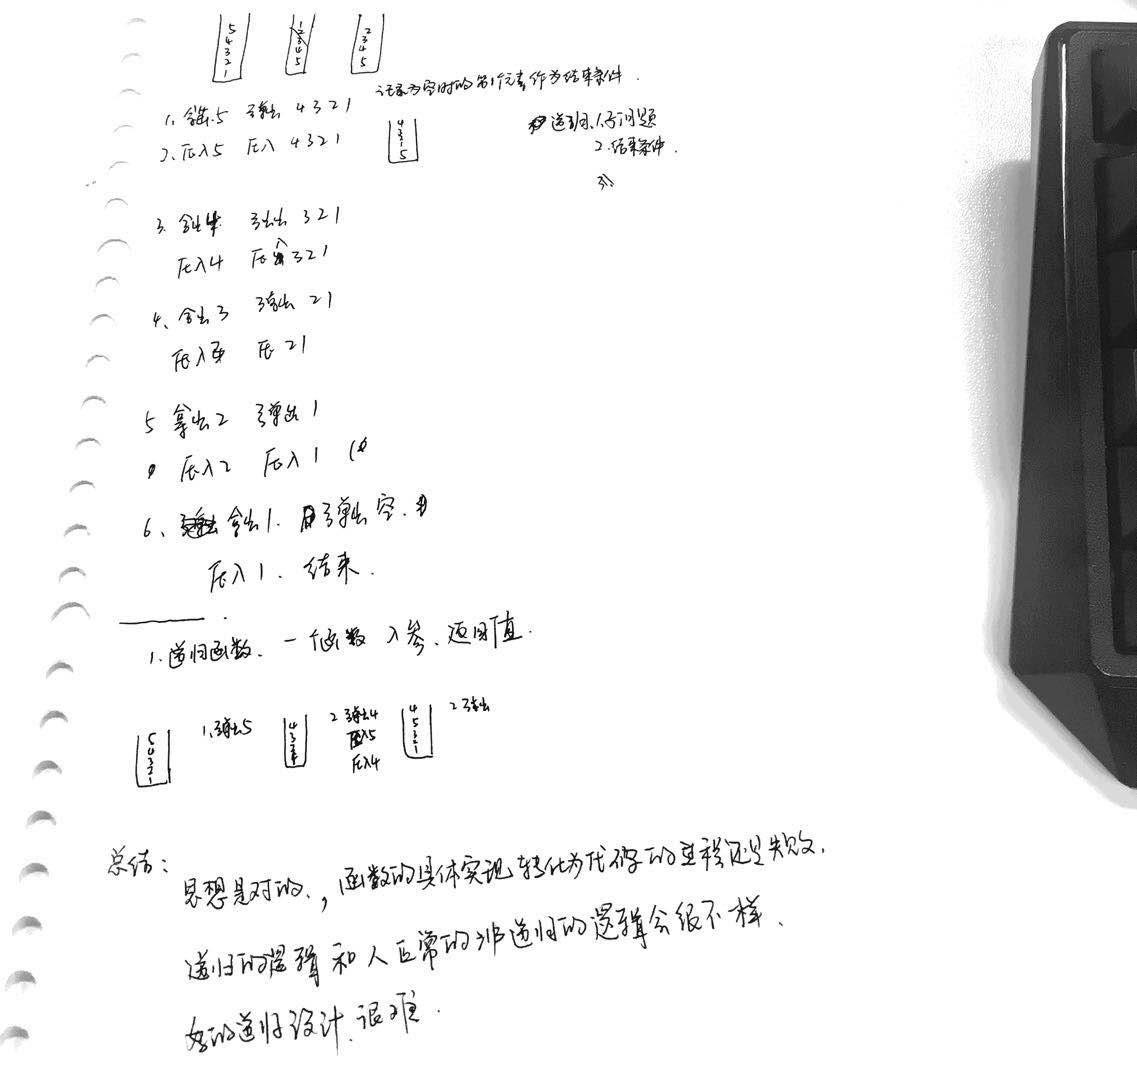 5 4 3 2 1
1 2 3 4 5
2 3 4 5
记录为空时的第1个元素作为结束条件.
1. 拿出5 弹出 4 3 2 1
2. 压入5 压入 4 3 2 1
4 3 2 1 5
递归 1. 子问题
2. 结束条件.
3.
3. 拿出4 弹出 3 2 1
压入4 压入 3 2 1
4. 拿出3 弹出 2 1
压入3 压 2 1
5 拿出2 弹出 1
压入2 压入 1
6. 拿出1. 弹出 空.
压入1. 结束.
1. 递归函数. 一个函数 入参、返回值.
5 4 3 2 1
1. 弹出5
4 3 2 1
2 弹出4
压入5
压入4
4 5 3 2 1
2 弹出
总结:
思想是对的., 函数的具体实现转化为代码的过程还是失败.
递归的逻辑和人正常的非递归的逻辑会很不一样.
好的递归设计.很难.